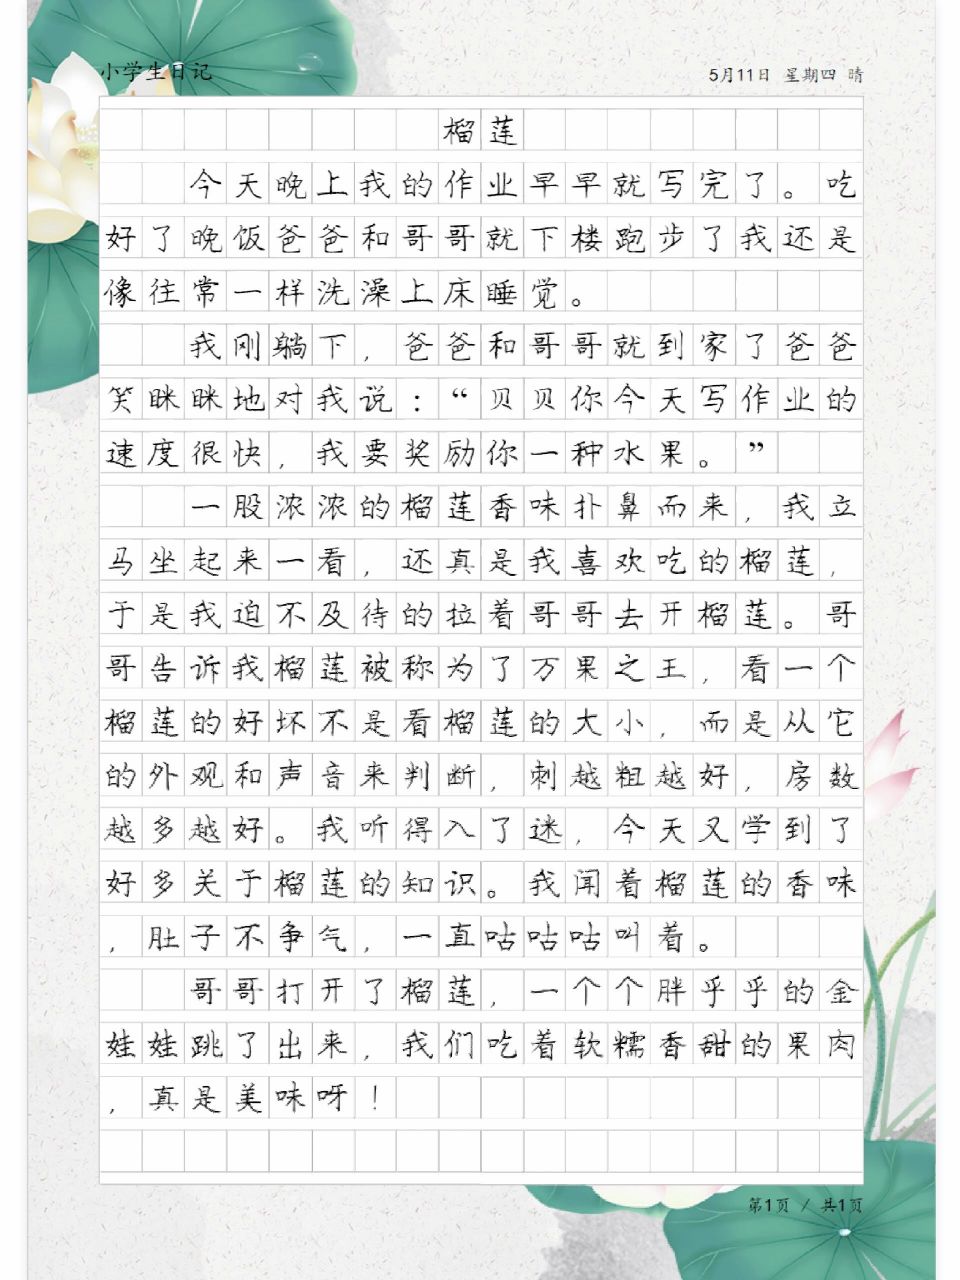 小学生日记
5月11日 星期四 晴
榴莲
今天晚上我的作业早早就写完了。吃
好了晚饭爸爸和哥哥就下楼跑步了我还是
像往常一样洗澡上床睡觉。
我刚躺下，爸爸和哥哥就到家了爸爸
笑眯眯地对我说：“贝贝你今天写作业的
速度很快，我要奖励你一种水果。”
一股浓浓的榴莲香味扑鼻而来，我立
马坐起来一看，还真是我喜欢吃的榴莲，
于是我迫不及待的拉着哥哥去开榴莲。哥
哥告诉我榴莲被称为了万果之王，看一个
榴莲的好坏不是看榴莲的大小，而是从它
的外观和声音来判断，刺越粗越好，房数
越多越好。我听得入了迷，今天又学到了
好多关于榴莲的知识。我闻着榴莲的香味
，肚子不争气，一直咕咕咕叫着。
哥哥打开了榴莲，一个个胖乎乎的金
娃娃跳了出来，我们吃着软糯香甜的果肉
，真是美味呀！
第1页 / 共1页